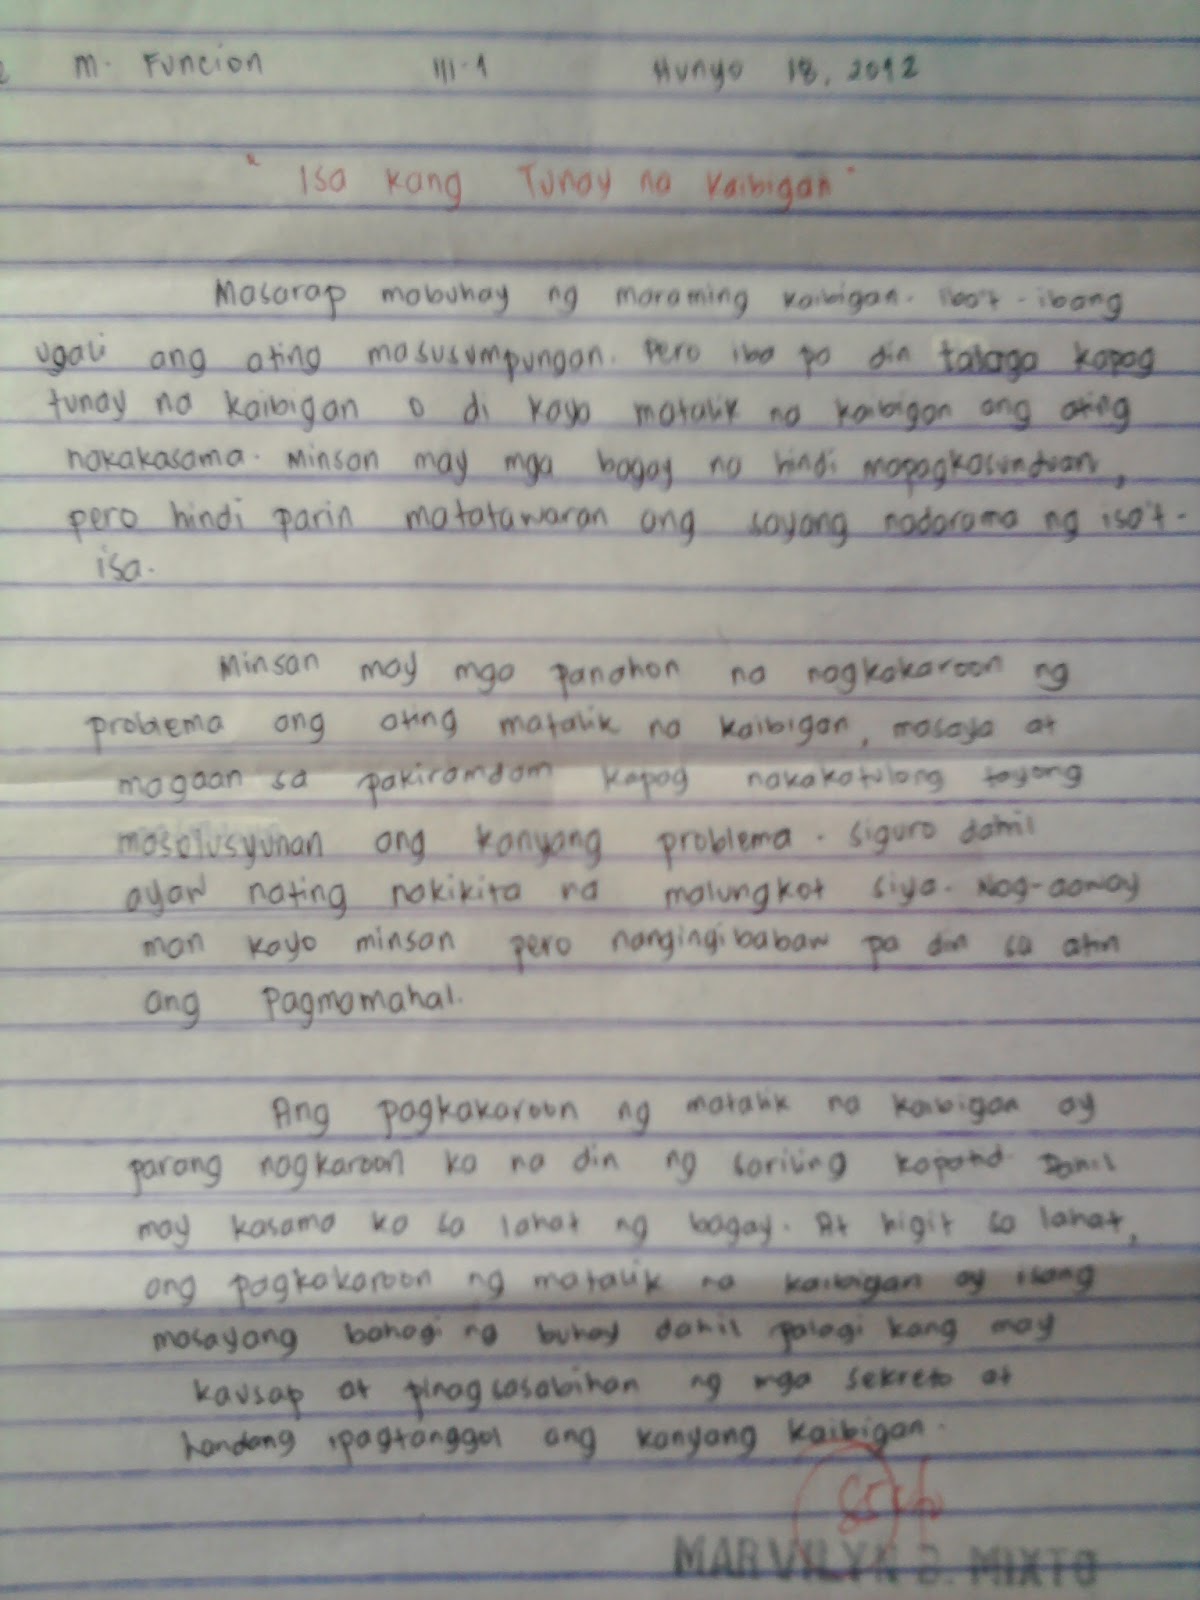 M. Funcion III-1 Hunyo 18, 2012
" Isa kang Tunay na Kaibigan "
Masarap mabuhay ng maraming kaibigan. Iba't-ibang
ugali ang ating masusumpungan. Pero iba pa din talaga kapag
tunay na kaibigan o di kaya matalik na kaibigan ang ating
nakakasama. Minsan may mga bagay na hindi mapagkasunduan,
pero hindi parin matatawaran ang sayang nadarama ng isa't-
isa.
Minsan may mga panahon na nagkakaroon ng
problema ang ating matalik na kaibigan, masaya at
magaan sa pakiramdam kapag nakakatulong tayong
masolusyunan ang kanyang problema. Siguro dahil
ayaw nating nakikita na malungkot siya. Nag-aaway
man kayo minsan pero nangingibabaw pa din sa atin
ang Pagmamahal.
Ang pagkakaroon ng matalik na kaibigan ay
parang nagkaroon ka na din ng sariling kapatid. Dahil
may kasama ka sa lahat ng bagay. At higit sa lahat,
ang pagkakaroon ng matalik na kaibigan ay isang
masayang bahagi ng buhay dahil palagi kang may
kausap at pinagsasabihan ng mga sekreto at
handang ipagtanggol ang kanyang kaibigan.
85
MARVILYN B. MIXTO